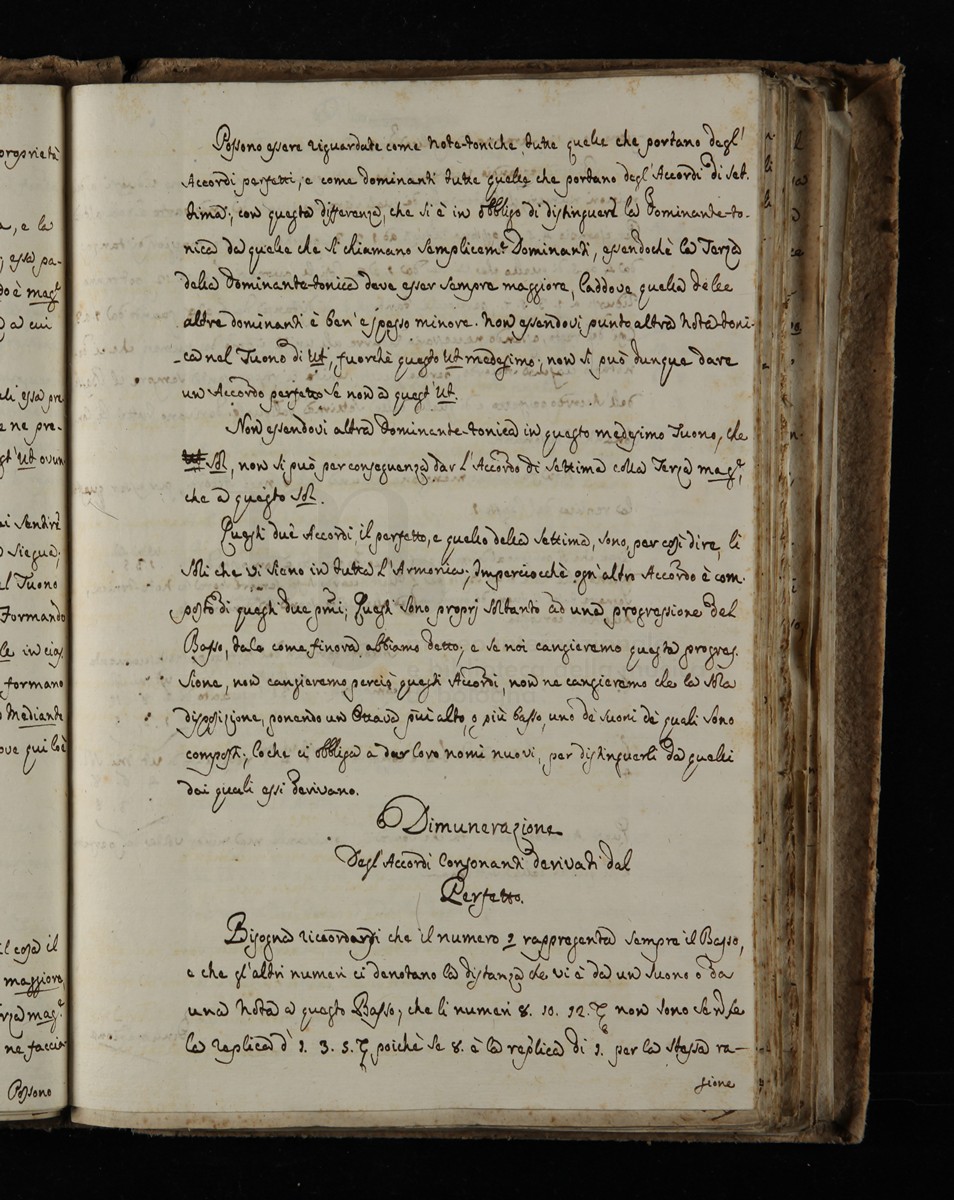 Possono essere riguardate come Note-toniche tutte quelle che portano degl'
Accordi perfetti, e come dominanti tutte quelle che portano degl'Accordi di Set-
tima; con questa differenza, che si è in obbligo di distinguere la Dominante-to-
nica da quelle che si chiamano semplicem.e Dominanti, essendochè la Terza
della Dominante-tonica deve esser sempre maggiore, laddove quella delle
altre dominanti è ben'espesso minore. Non essendovi punto altra Nota-toni-
-ca nel Tuono di Ut, fuorchè questo Ut medesimo; non si può dunque dare
un Accordo perfetto se non a quest'Ut.
Non essendovi altra Dominante-tonica in questo medesimo Tuono, che
Sol, non si può per conseguenza dar l'Accordo di Settima colla Terza mag.e,
che a questo Sol.
Questi due Accordi, il perfetto, e quello della Settima, sono, per così dire, li
soli che vi sieno in tutta l'Armonia; Imperciocchè ogn'altro Accordo è com-
posto di questi due pmi; Questi sono proprj soltanto ad una progressione del
Basso, tale come finora abbiamo detto; e se noi cangieremo questa progres-
sione, non cangieremo perciò questi Accordi, non ne cangieremo che la sola
disposizione, ponendo un Ottava più alto, o più basso, uno de' suoni de' quali sono
composti; loche ci obbliga a dar loro nomi nuovi, per distinguerli da quelli
dai quali essi derivano.
Dimunerazione
Degl'Accordi Consonanti derivati dal
Perfetto.
Bisogna ricordarsi che il numero 1 rappresenta sempre il Basso,
e che gl'altri numeri ci denotano la distanza che vi è da un suono o da
una Nota a questo Basso; che li numeri 8. 10. 12. &c non sono se non
la replica d' 1. 3. 5. &c poichè se 8. è la replica di 1. per la stessa ra-
gione